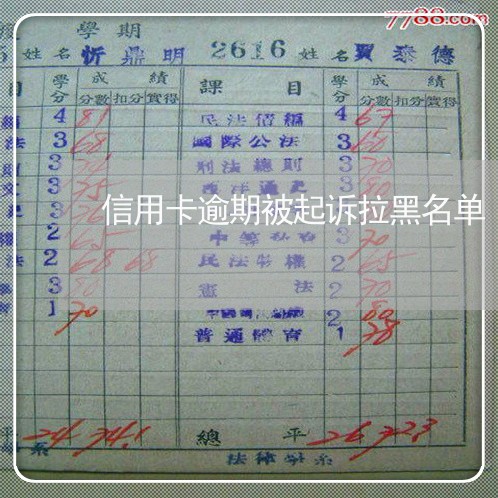 7788.com
學期
姓名 忻鼎明 2616 姓名 賈泰德
目 學分 成績 課目 學分 成績
分數 扣分 實得 分數 扣分 實得
4 81 民法債編 4 67
法 3 68 國際公法 3 60
3 刑法總則 3 70
3 75 西洋通史
信用卡逾期被起诉拉黑名单
2 65 3 70
法 2 68 68 民法物權 2 65
3 憲法 2 70
1 70 2 80
普通體育 1 78
平 24 74.1 總平 26 72.3
系 法律學系